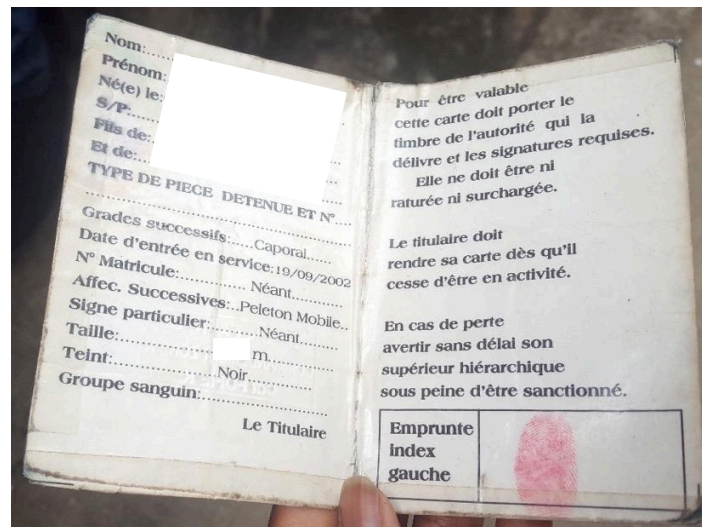 Nom:......
Prénom:
Né(e) le:
S/P......
Fils de:
Et de:......
TYPE DE PIECE DETENUE ET N°....
Grades successifs:.....Caporal......
Date d'entrée en service:19/09/2002
N° Matricule:............Néant...........
Affec. Successives:..Peleton Mobile..
Signe particulier:..........Néant........
Taille:.................... m.............
Teint:....................Noir...............
Groupe sanguin:........................
Le Titulaire
Pour être valable
cette carte doit porter le
timbre de l'autorité qui la
délivre et les signatures requises.
Elle ne doit être ni
raturée ni surchargée.
Le titulaire doit
rendre sa carte dès qu'il
cesse d'être en activité.
En cas de perte
avertir sans délai son
supérieur hiérarchique
sous peine d'être sanctionné.
Emprunte
index
gauche